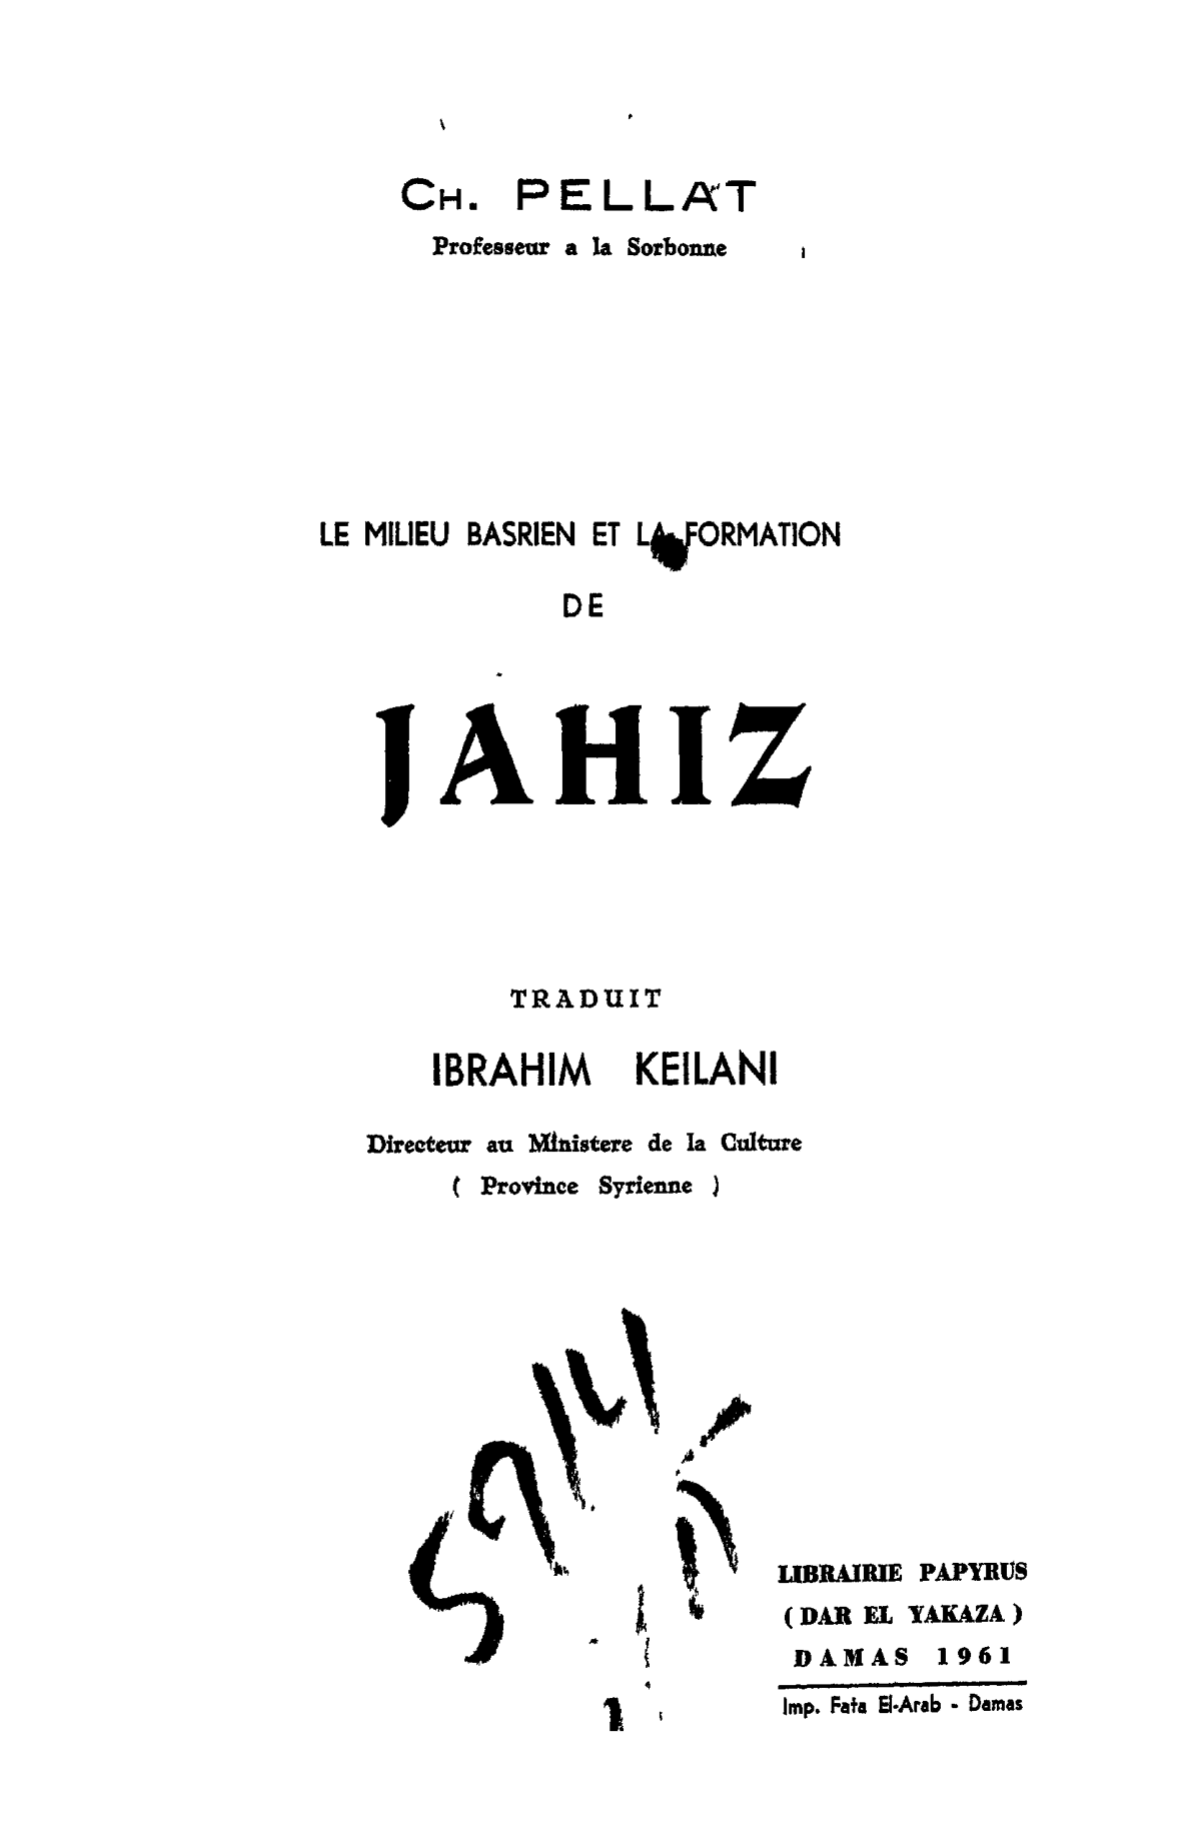 CH. PELLAT
Professeur a la Sorbonne
LE MILIEU BASRIEN ET LA FORMATION
DE
JAHIZ
TRADUIT
IBRAHIM KEILANI
Directeur au Ministere de la Culture
( Province Syrienne )
LIBRAIRIE PAPYRUS
( DAR EL YAKAZA )
DAMAS 1961
Imp. Fata El-Arab - Damas